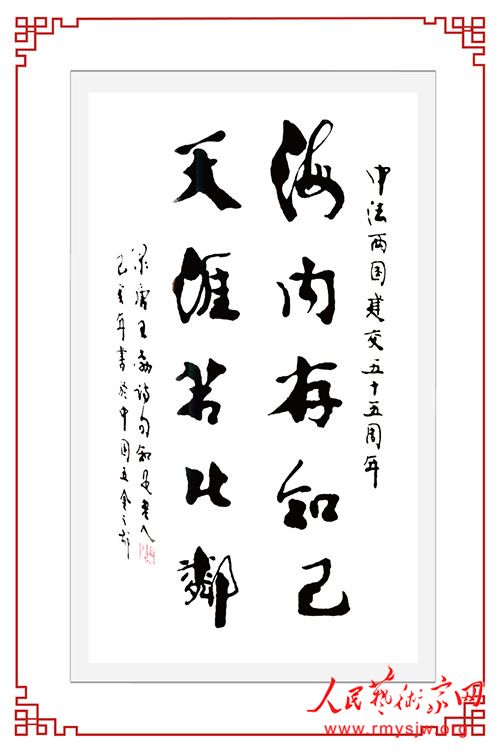 中法两国建交五十五周年
海内存知己
天涯若比鄰
录唐王勃诗句知老人
己亥年书於中国五金之都
人民藝術家网
www.rmysjw.org